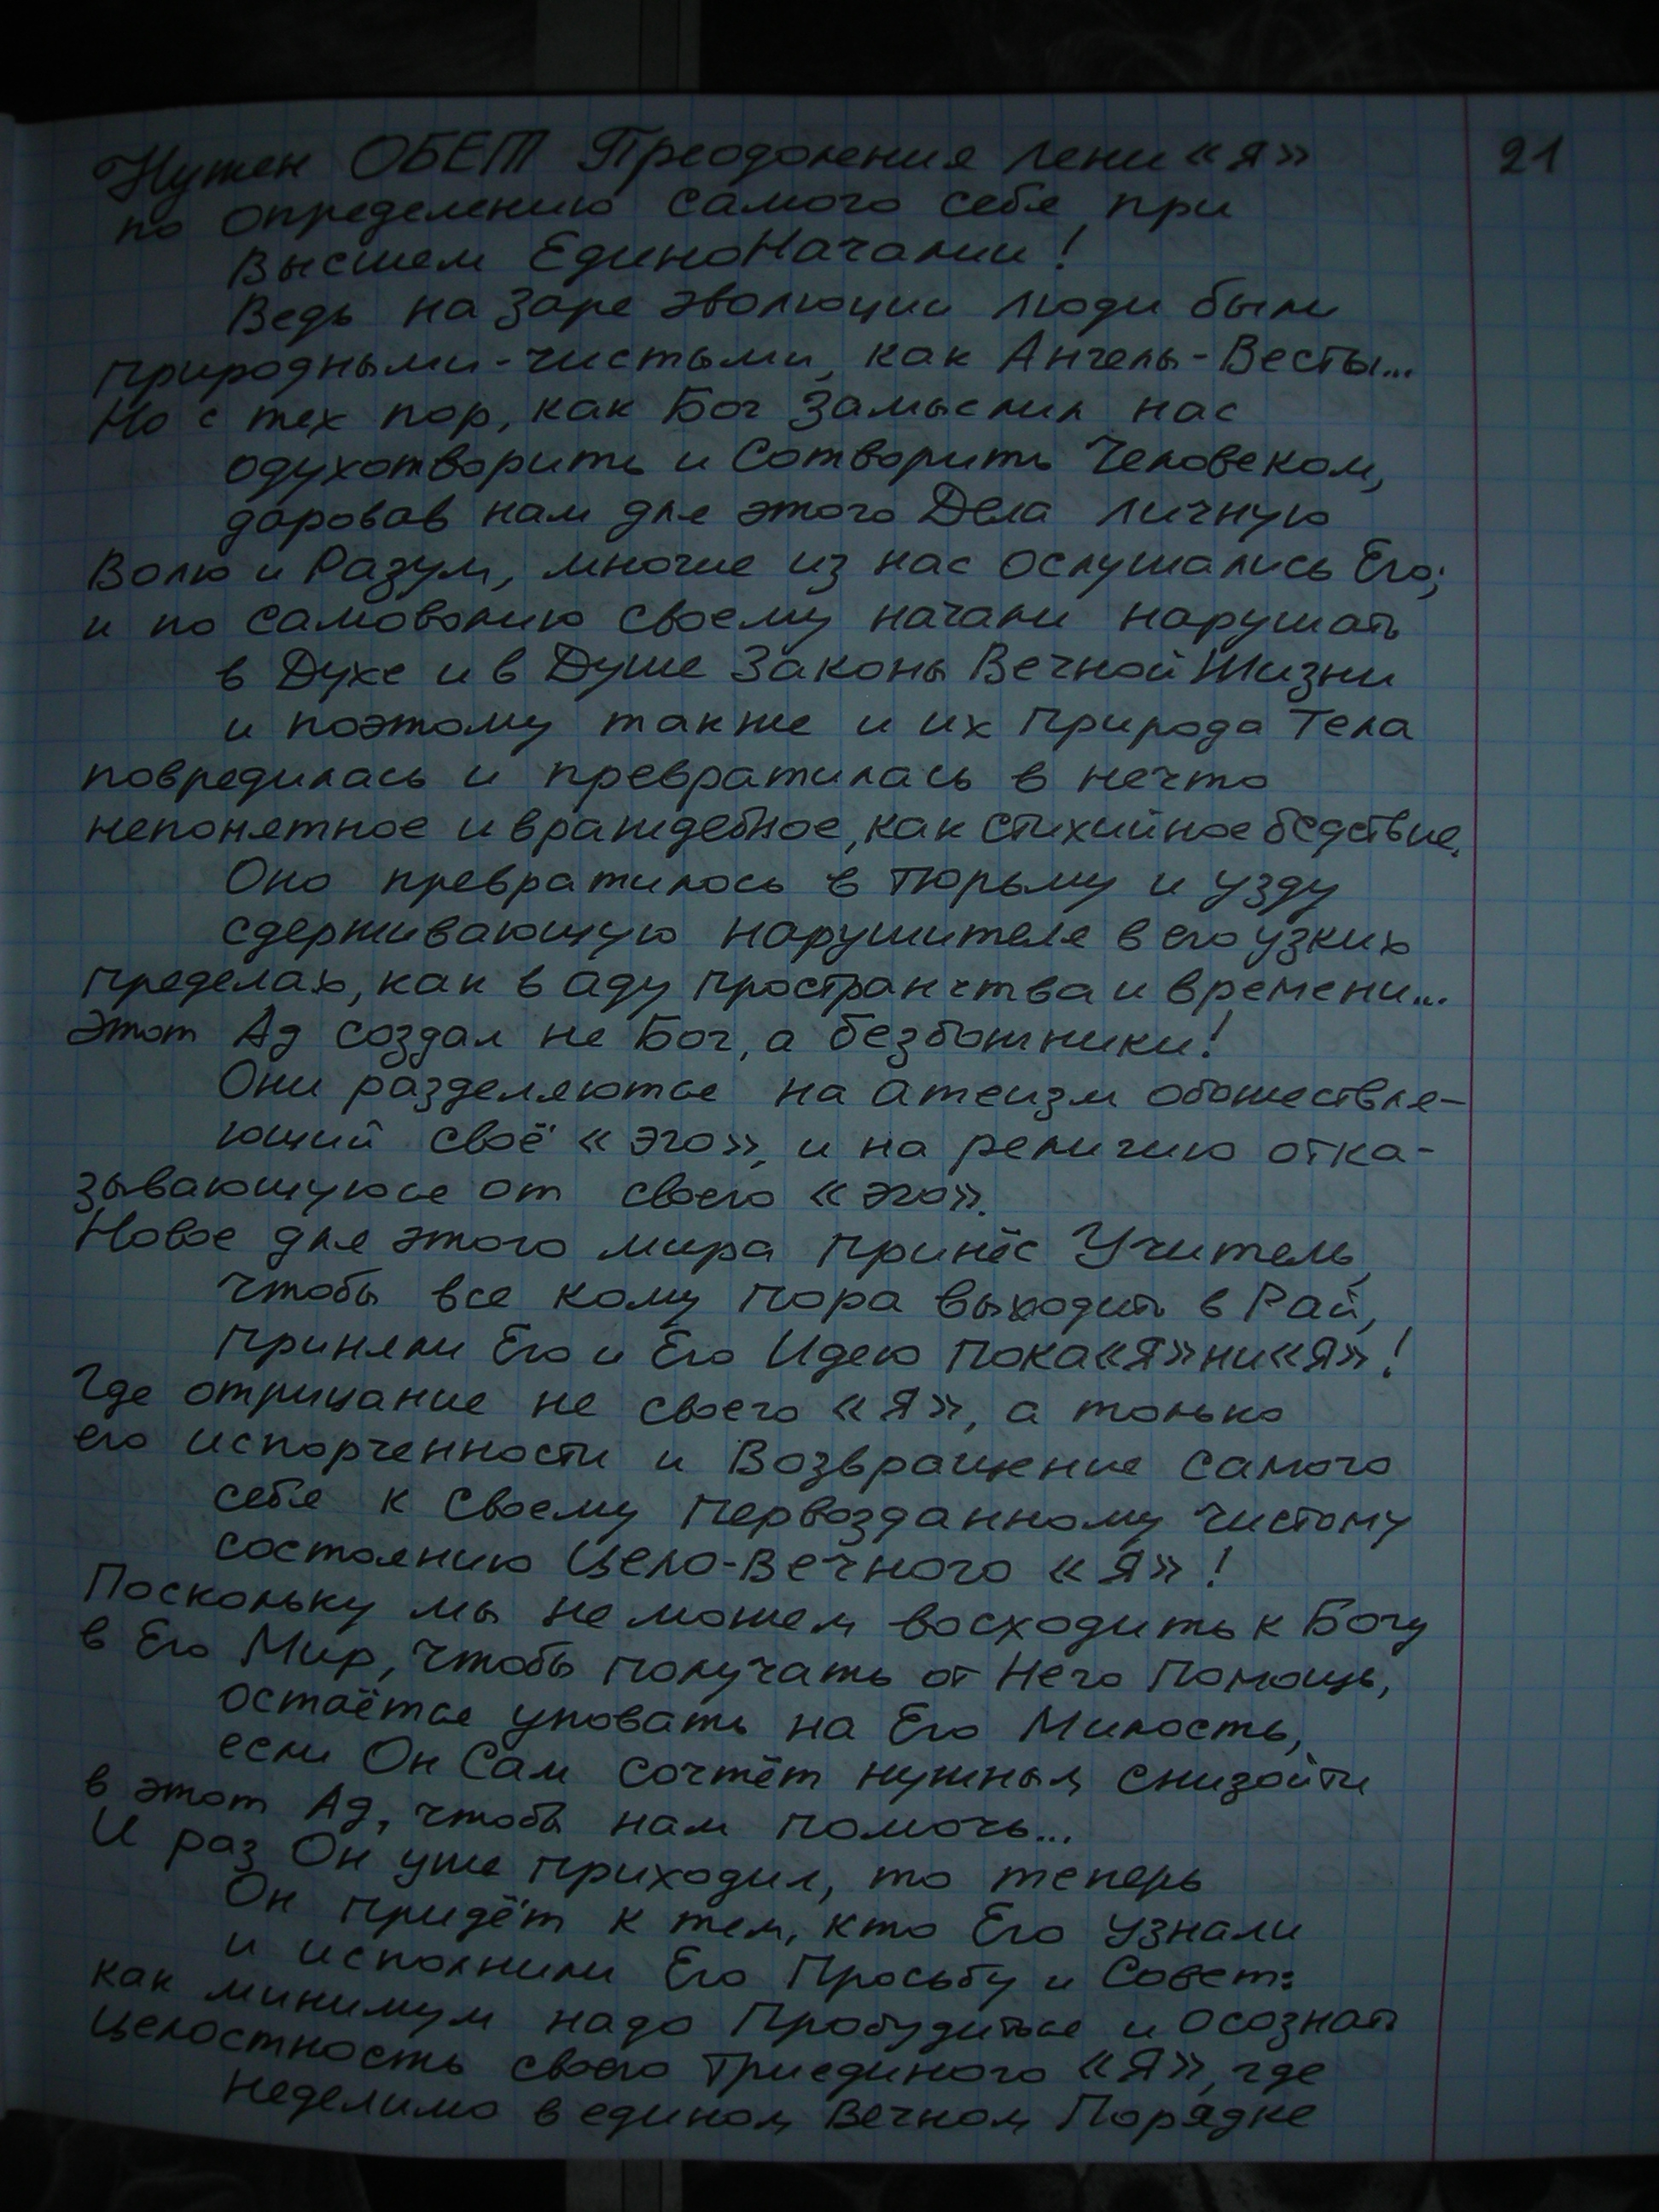 Нужен ОБЕТ Преодоления лени «Я»
21
по определению самого себя при
Высшем ЕдиноНачалии!
Ведь на заре эволюции люди были
природными-чистыми, как Ангелы-Весты...
Но с тех пор, как Бог Замыслил нас
одухотворить и Сотворить Человеком,
даровав нам для этого Дела личную
Волю и Разум, многие из нас ослушались Его;
и по самоволию своему начали нарушать
в Духе и в Душе Законы Вечной Жизни
и поэтому также и их природа Тела
повредилась и превратилась в нечто
непонятное и враждебное, как стихийное бедствие.
Оно превратилось в тюрьму и узду
сдерживающую нарушителя в его узких
пределах, как в аду пространчтва и времени...
Этот Ад создал не Бог, а безбожники!
Они разделяются на атеизм обожествля-
ющий своё «эго», и на религию отка-
зывающуюся от своего «эго».
Новое для этого мира принёс Учитель,
чтобы все кому пора выходить в Рай,
приняли Его и Его Идею пока«Я»ни«Я»!
Где отрицание не своего «Я», а только
его испорченности и Возвращение самого
себя к своему первозданному чистому
состоянию Цело-Вечного «Я»!
Поскольку мы не можем восходить к Богу
в Его Мир, чтобы получать от Него помощь,
остаётся уповать на Его Милость,
если Он Сам сочтёт нужным снизойти
в этот Ад, чтобы нам помочь...
И раз Он уже приходил, то теперь
Он придёт к тем, кто Его узнали
и исполнили Его Просьбу и Совет:
как минимум надо Пробудиться и осознать
целостность своего Триединого «Я», где
неделимо в едином Вечном Порядке